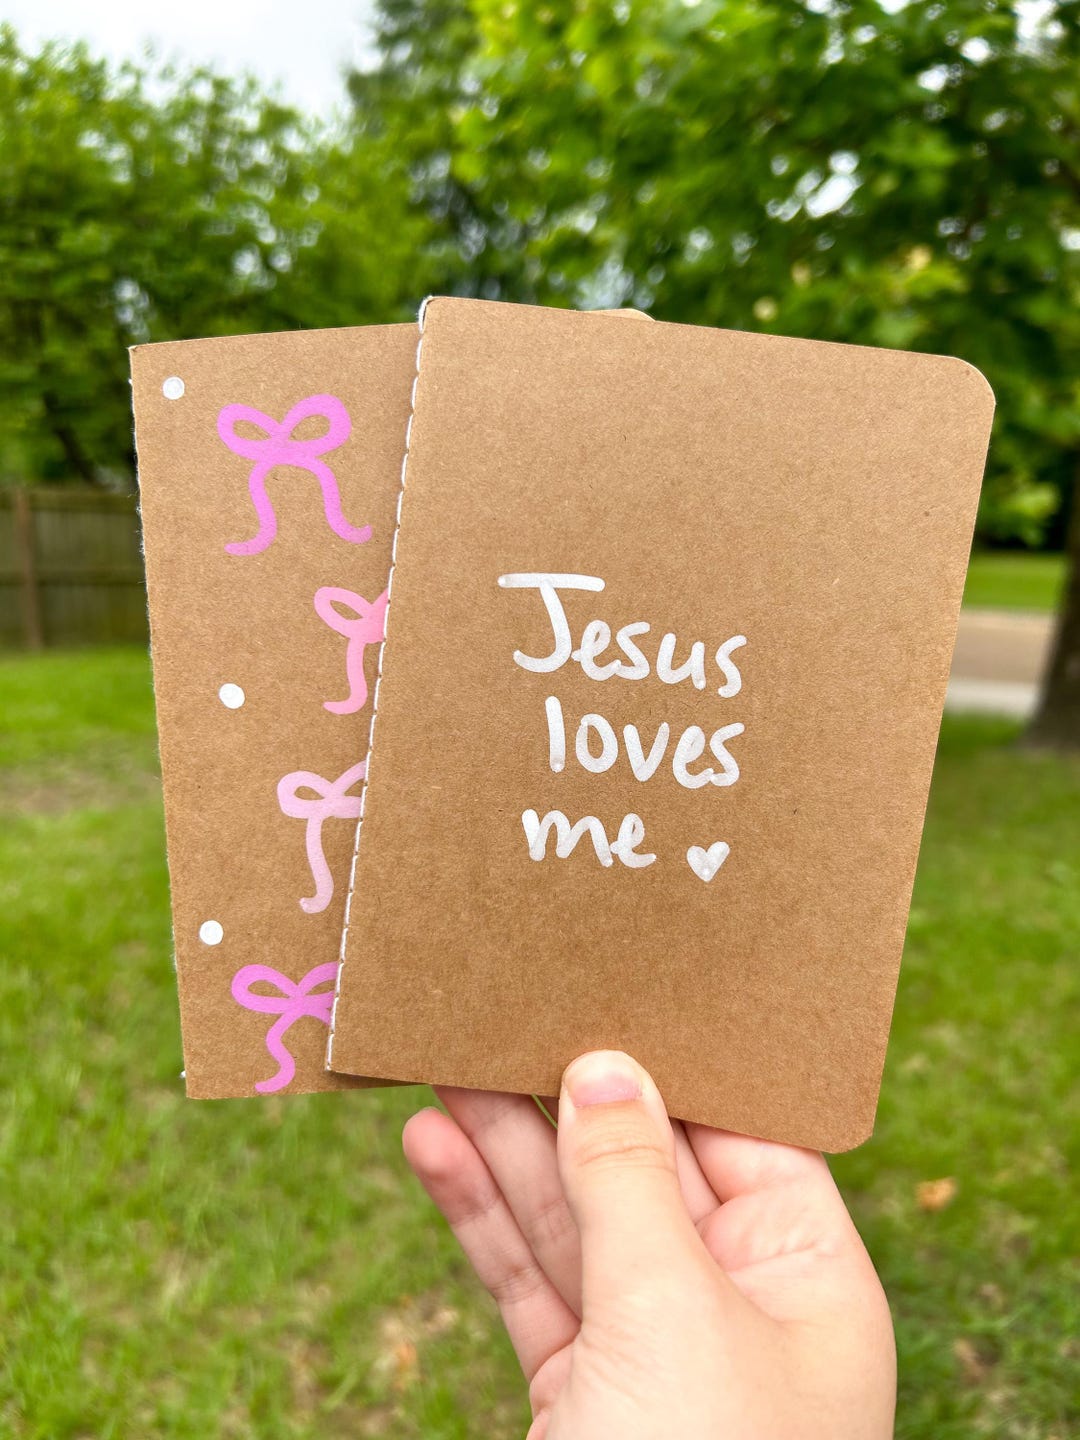 Jesus
loves
me